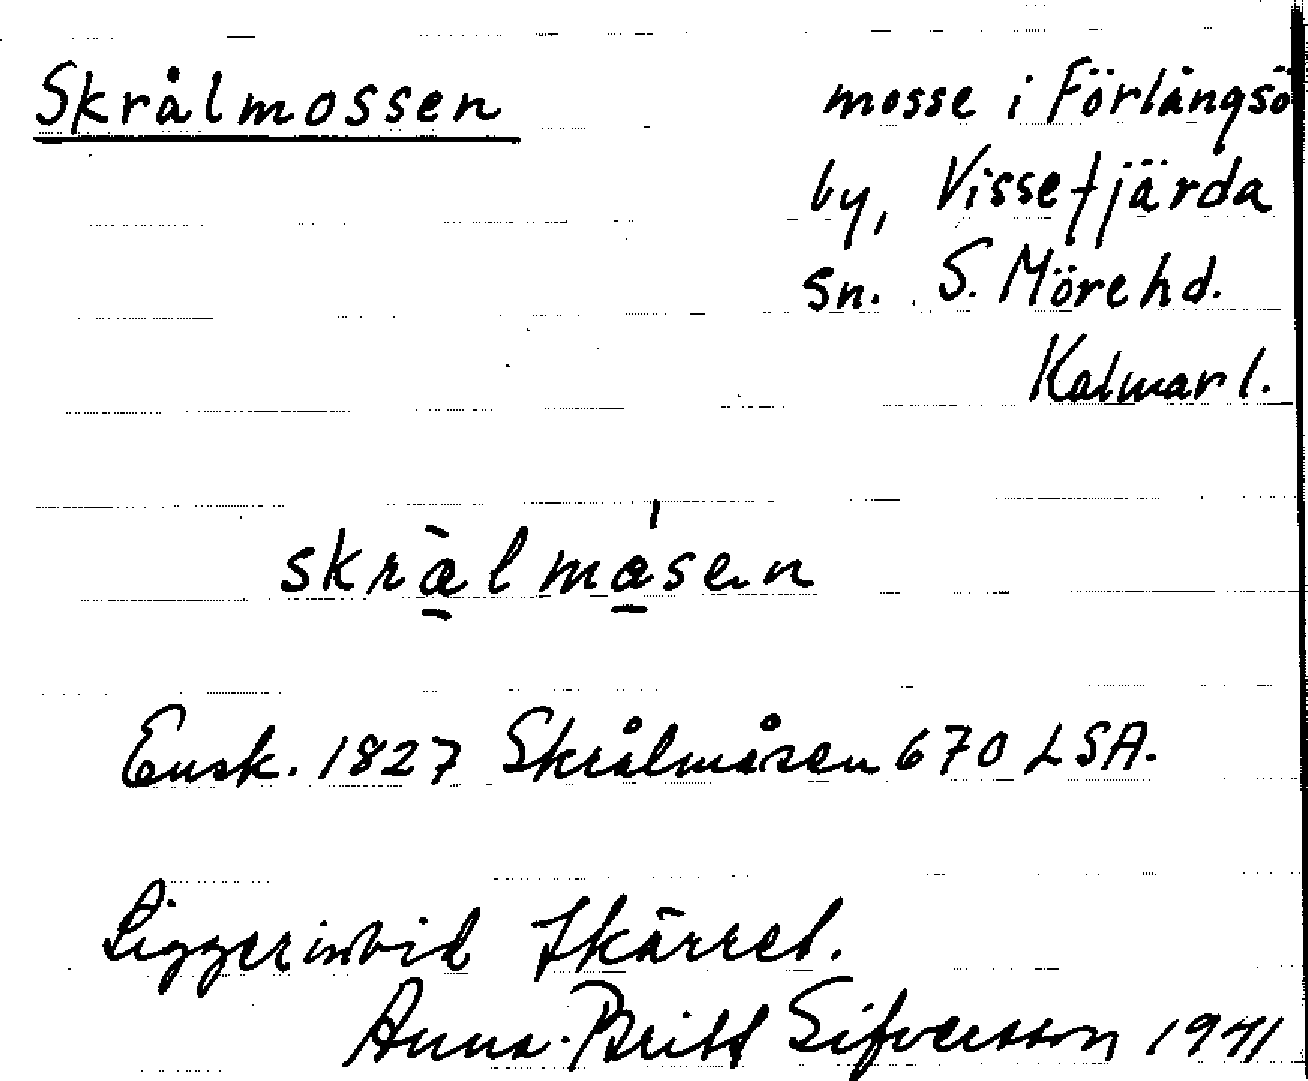 Skrålmossen
mosse i Förlångsö
by, Vissefjärda
sn. S. Möre hd.
Kalmar l.
skrà̱lma̱´sen
Ensk. 1827 Skrålmåsen 670 LSA.
Ligger invid Skärret.
Anna-Britt Sifversson 1941